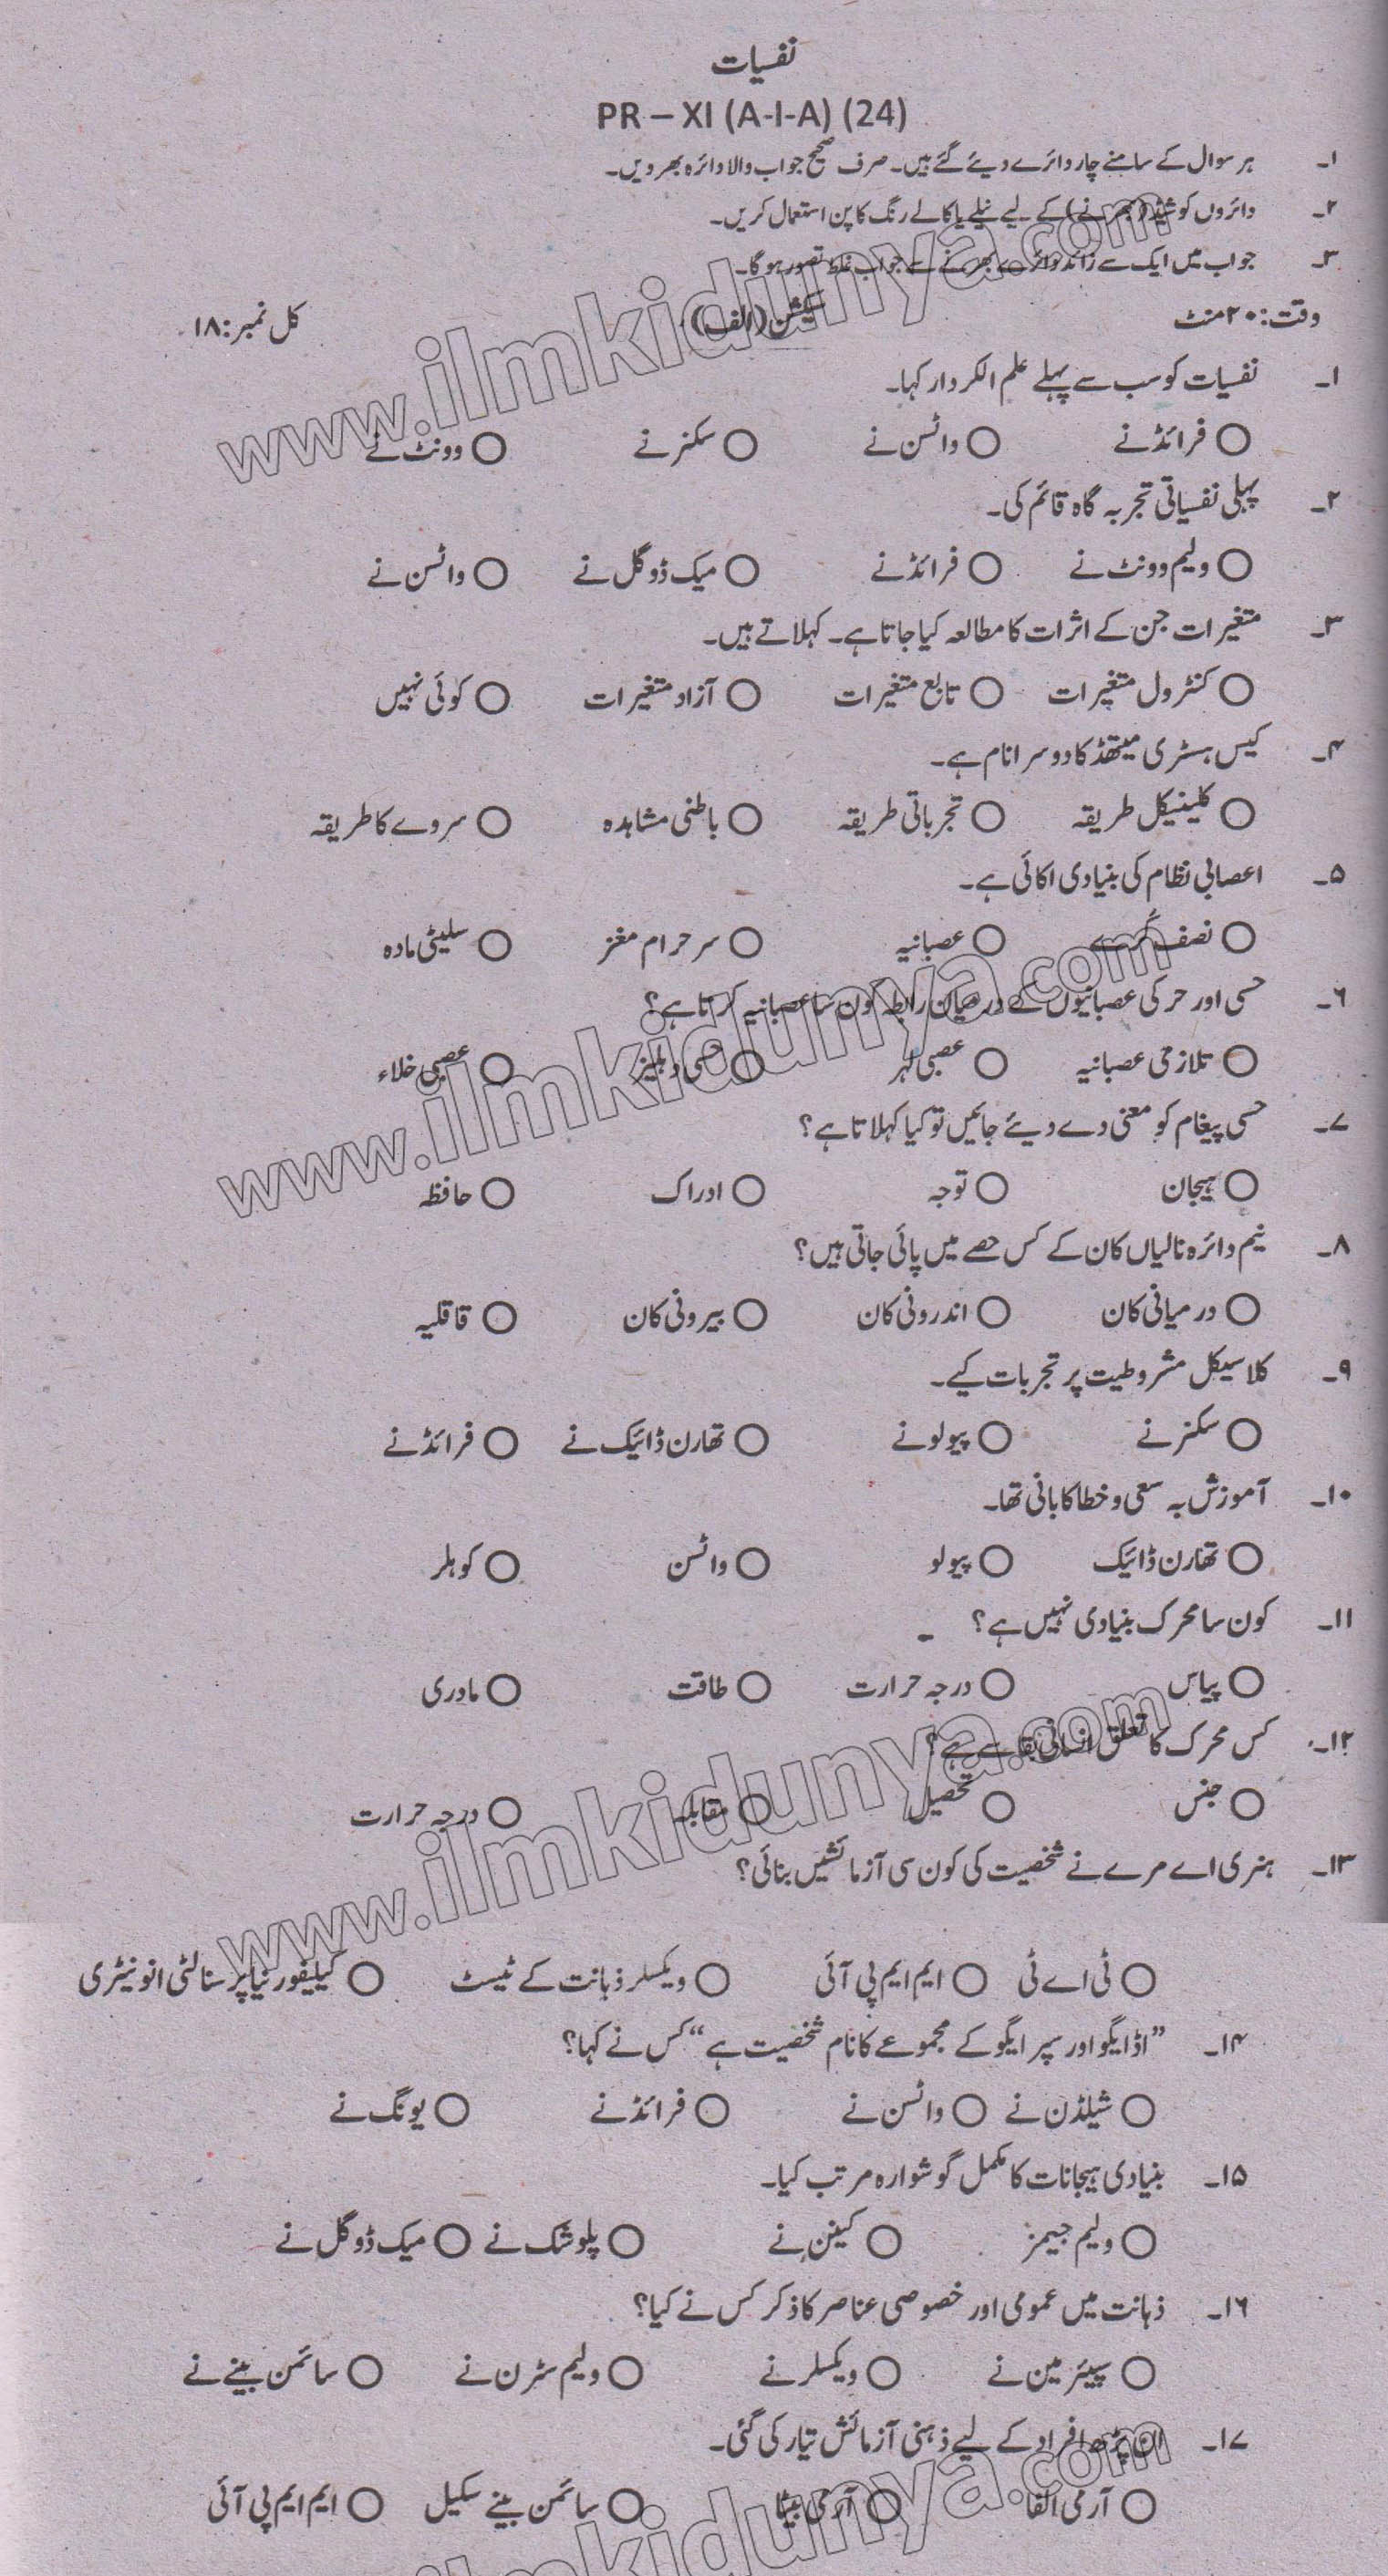 نفسیات
PR – XI (A-I-A) (24)
۱۔ ہر سوال کے سامنے چار دائرے دیئے گئے ہیں۔ صرف صحیح جواب والا دائرہ بھر دیں۔
۲۔ دائروں کو شیڈ (بھرنے) کے لیے نیلے یا کالے رنگ کا پن استعمال کریں۔
۳۔ جواب میں ایک سے زائد دائرے بھرنے سے جواب غلط تصور ہو گا۔
وقت: ۲۰ منٹ سیکشن (الف) کل نمبر: ۱۸
۱۔ نفسیات کو سب سے پہلے علم الکردار کہا۔
○ فرائڈ نے ○ واٹسن نے ○ سکنر نے ○ وونٹ نے
۲۔ پہلی نفسیاتی تجربہ گاہ قائم کی۔
○ ولیم وونٹ نے ○ فرائڈ نے ○ میک ڈوگل نے ○ واٹسن نے
۳۔ متغیرات جن کے اثرات کا مطالعہ کیا جاتا ہے۔ کہلاتے ہیں۔
○ کنٹرول متغیرات ○ تابع متغیرات ○ آزاد متغیرات ○ کوئی نہیں
۴۔ کیس ہسٹری میتھڈ کا دوسرا نام ہے۔
○ کلینیکل طریقہ ○ تجرباتی طریقہ ○ باطنی مشاہدہ ○ سروے کا طریقہ
۵۔ اعصابی نظام کی بنیادی اکائی ہے۔
○ نصف کرے ○ عصبانیہ ○ سر حرام مغز ○ سلیٹی مادہ
۶۔ حسی اور حرکی عصبانیوں کے درمیان رابطہ کون سا عصبانیہ کرتا ہے؟
○ تلازمی عصبانیہ ○ عصبی لہر ○ حسی دہلیز ○ عصبی خلاء
۷۔ حسی پیغام کو معنی دے دیئے جائیں تو کیا کہلاتا ہے؟
○ ہیجان ○ توجہ ○ ادراک ○ حافظہ
۸۔ نیم دائرہ نالیاں کان کے کس حصے میں پائی جاتی ہیں؟
○ درمیانی کان ○ اندرونی کان ○ بیرونی کان ○ قاقلیہ
۹۔ کلاسیکل مشروطیت پر تجربات کیے۔
○ سکنر نے ○ پیولو نے ○ تھارن ڈائیک نے ○ فرائڈ نے
۱۰۔ آموزش بہ سعی و خطا کا بانی تھا۔
○ تھارن ڈائیک ○ پیولو ○ واٹسن ○ کوہلر
۱۱۔ کون سا محرک بنیادی نہیں ہے؟
○ پیاس ○ درجہ حرارت ○ طاقت ○ مادری
۱۲۔ کس محرک کا تعلق انسانی بقا سے ہے؟
○ جنس ○ تحصیل ○ مقابلہ ○ درجہ حرارت
۱۳۔ ہنری اے مرے نے شخصیت کی کون سی آزمائشیں بنائی؟
○ ٹی اے ٹی ○ ایم ایم پی آئی ○ ویکسلر ذہانت کے ٹیسٹ ○ کیلیفورنیا پرسنالٹی انوینٹری
۱۴۔ ”اڈ ایگو اور سپر ایگو کے مجموعے کا نام شخصیت ہے“ کس نے کہا؟
○ شیلڈن نے ○ واٹسن نے ○ فرائڈ نے ○ یونگ نے
۱۵۔ بنیادی ہیجانات کا مکمل گوشوارہ مرتب کیا۔
○ ولیم جیمز ○ کینن نے ○ پلوشک نے ○ میک ڈوگل نے
۱۶۔ ذہانت میں عمومی اور خصوصی عناصر کا ذکر کس نے کیا؟
○ سپیئر مین نے ○ ویکسلر نے ○ ولیم سٹرن نے ○ سائمن بینے نے
۱۷۔ ان پڑھ افراد کے لیے ذہنی آزمائش تیار کی گئی۔
○ آرمی الفا ○ آرمی بیٹا ○ سائمن بینے سکیل ○ ایم ایم پی آئی
www.ilmkidunya.com
www.ilmkidunya.com
www.ilmkidunya.com
ilmkidunya.com